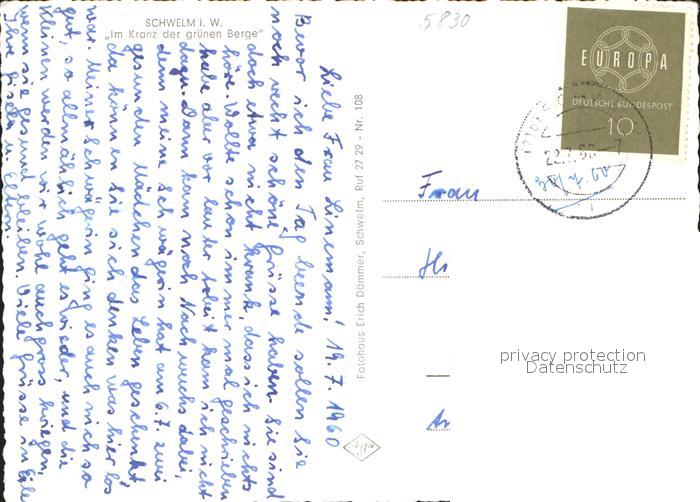 SCHWELM i. W.
„Im Kranz der grünen Berge"
5830
EUROPA
DEUTSCHE BUNDESPOST
10
22.7.60-7
20/7.60
Liebe Frau Linemann! 19.7.1960
Bevor sich der Tag beendet sollen Sie
noch recht schöne Grüsse haben. Sie sind
doch etwa nicht krank, dass ich nichts
höre. Wollte schon immer mal geschrieben
habe aber vor lauter Arbeit kam ich nicht
dazu. Dann kam noch Nachwuchs dabei,
denn meine Schwägerin hat am 6.7. zwei
gesunden Mädchen das Leben geschenkt
da können Sie sich denken was hier los
war. Meiner Schwägerin ging es auch nicht so
gut, so allmählich geht es wieder, und die
kleinen werden wir wohl auch gross kriegen,
wenn sie gesund bleiben. Viele Grüsse in Eile
Ihre Gisela u. Eltern.
Fotohaus Erich Dämmer, Schwelm, Ruf 27 29 - Nr. 108
Agfa
Frau
privacy protection
Datenschutz